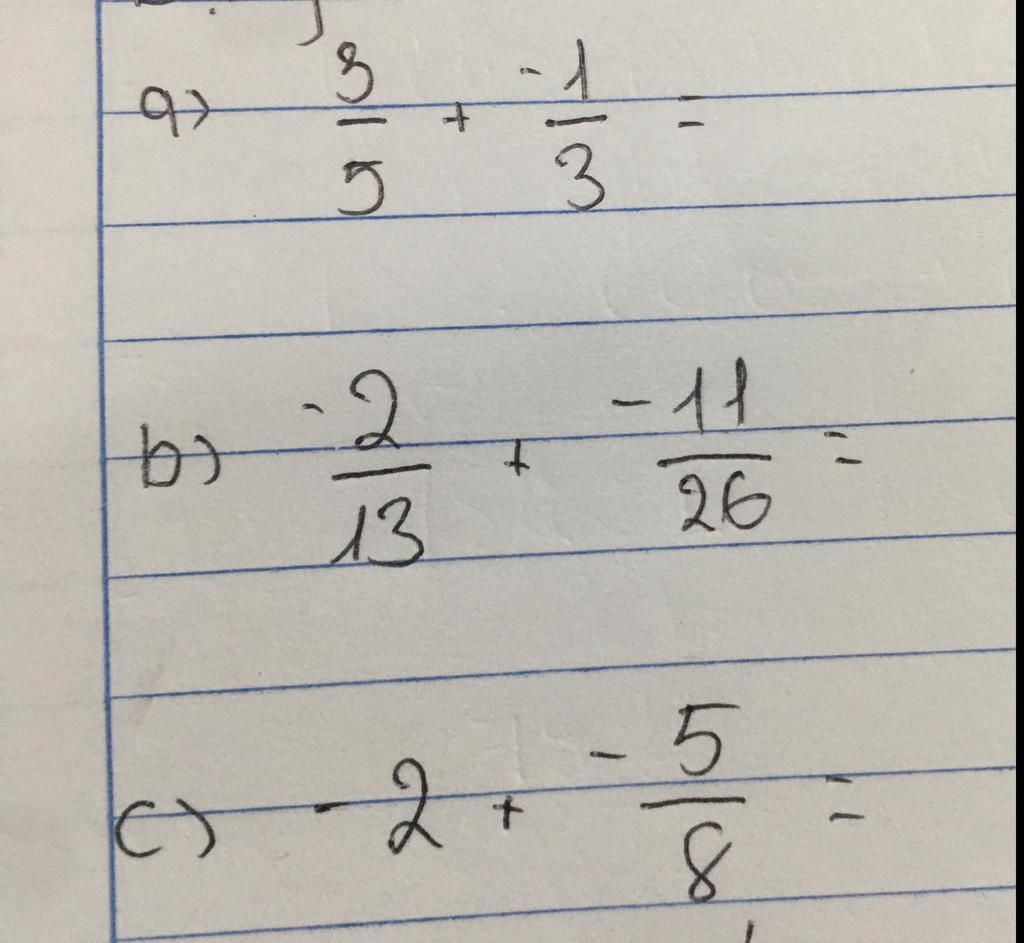 a) 3/5 + -1/3 =
b) -2/13 + -11/26 =
c) -2 + -5/8 =